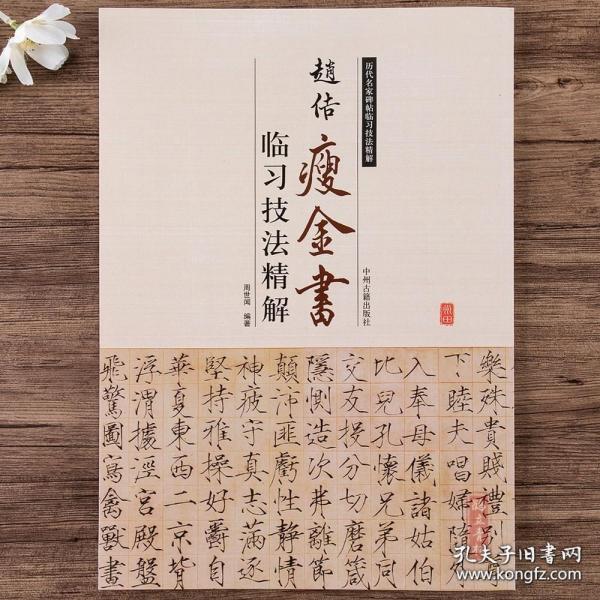 历代名家碑帖临习技法精解
趙佶
瘦金書
临习技法精解
周世闻 编著
中州古籍出版社
樂殊貴賤禮別尊
下睦夫唱婦隨
入奉母儀諸姑伯
比兒孔懷兄弟同
交友投分切磨箴
隱惻造次弗離節
顛沛匪虧性靜情
神疲守真志滿逐
堅持雅操好爵自
華夏東西二京背
浮渭據涇宮殿盤
飛驚圖寫禽獸畫
孔夫子旧书网
www.kongfz.com